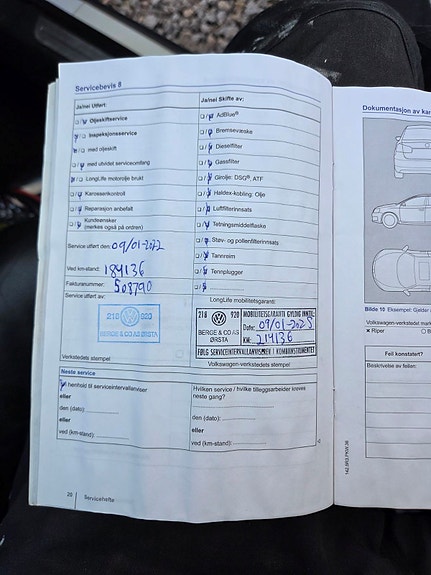 Servicebevis 8
Ja/nei Utført:
Ja/nei Skifte av:
Oljeskiftservice
AdBlue®
Inspeksjonsservice
Bremsevæske
med oljeskift
Dieselfilter
med utvidet serviceomfang
Gassfilter
LongLife motorolje brukt
Girolje: DSG®, ATF
Karosserikontroll
Haldex-kobling: Olje
Reparasjon anbefalt
Luftfilterinnsats
Kundeønsker
(merkes også på ordren)
Tetningsmiddelflaske
Støv- og pollenfilterinnsats
Service utført den: 09/01-2022
Tannreim
Ved km-stand: 184136
Tennplugger
Fakturanummer: 508790
Service utført av:
LongLife mobilitetsgaranti:
218 920
BERGE & CO AS ØRSTA
218 920
BERGE & CO AS
ØRSTA
MOBILITETSGARANTI GYLDIG INNTIL
Dato: 09/01-2023
KM: 214136
FØLG SERVICEINTERVALLANVISNINGEN I KOMBIINSTRUMENTET
Verkstedets stempel
Volkswagen-verkstedets stempel
Neste service
I henhold til serviceintervallanviser
eller
den (dato):
eller
ved (km-stand):
Hvilken service / hvilke tilleggsarbeider kreves
neste gang?
den (dato):
eller
ved (km-stand):
20 Servicehefte
Dokumentasjon av kar
Bilde 10 Eksempel: Gjelder
Volkswagen-verkstedet mark
Riper
Feil konstatert?
Beskrivelse av feilen: